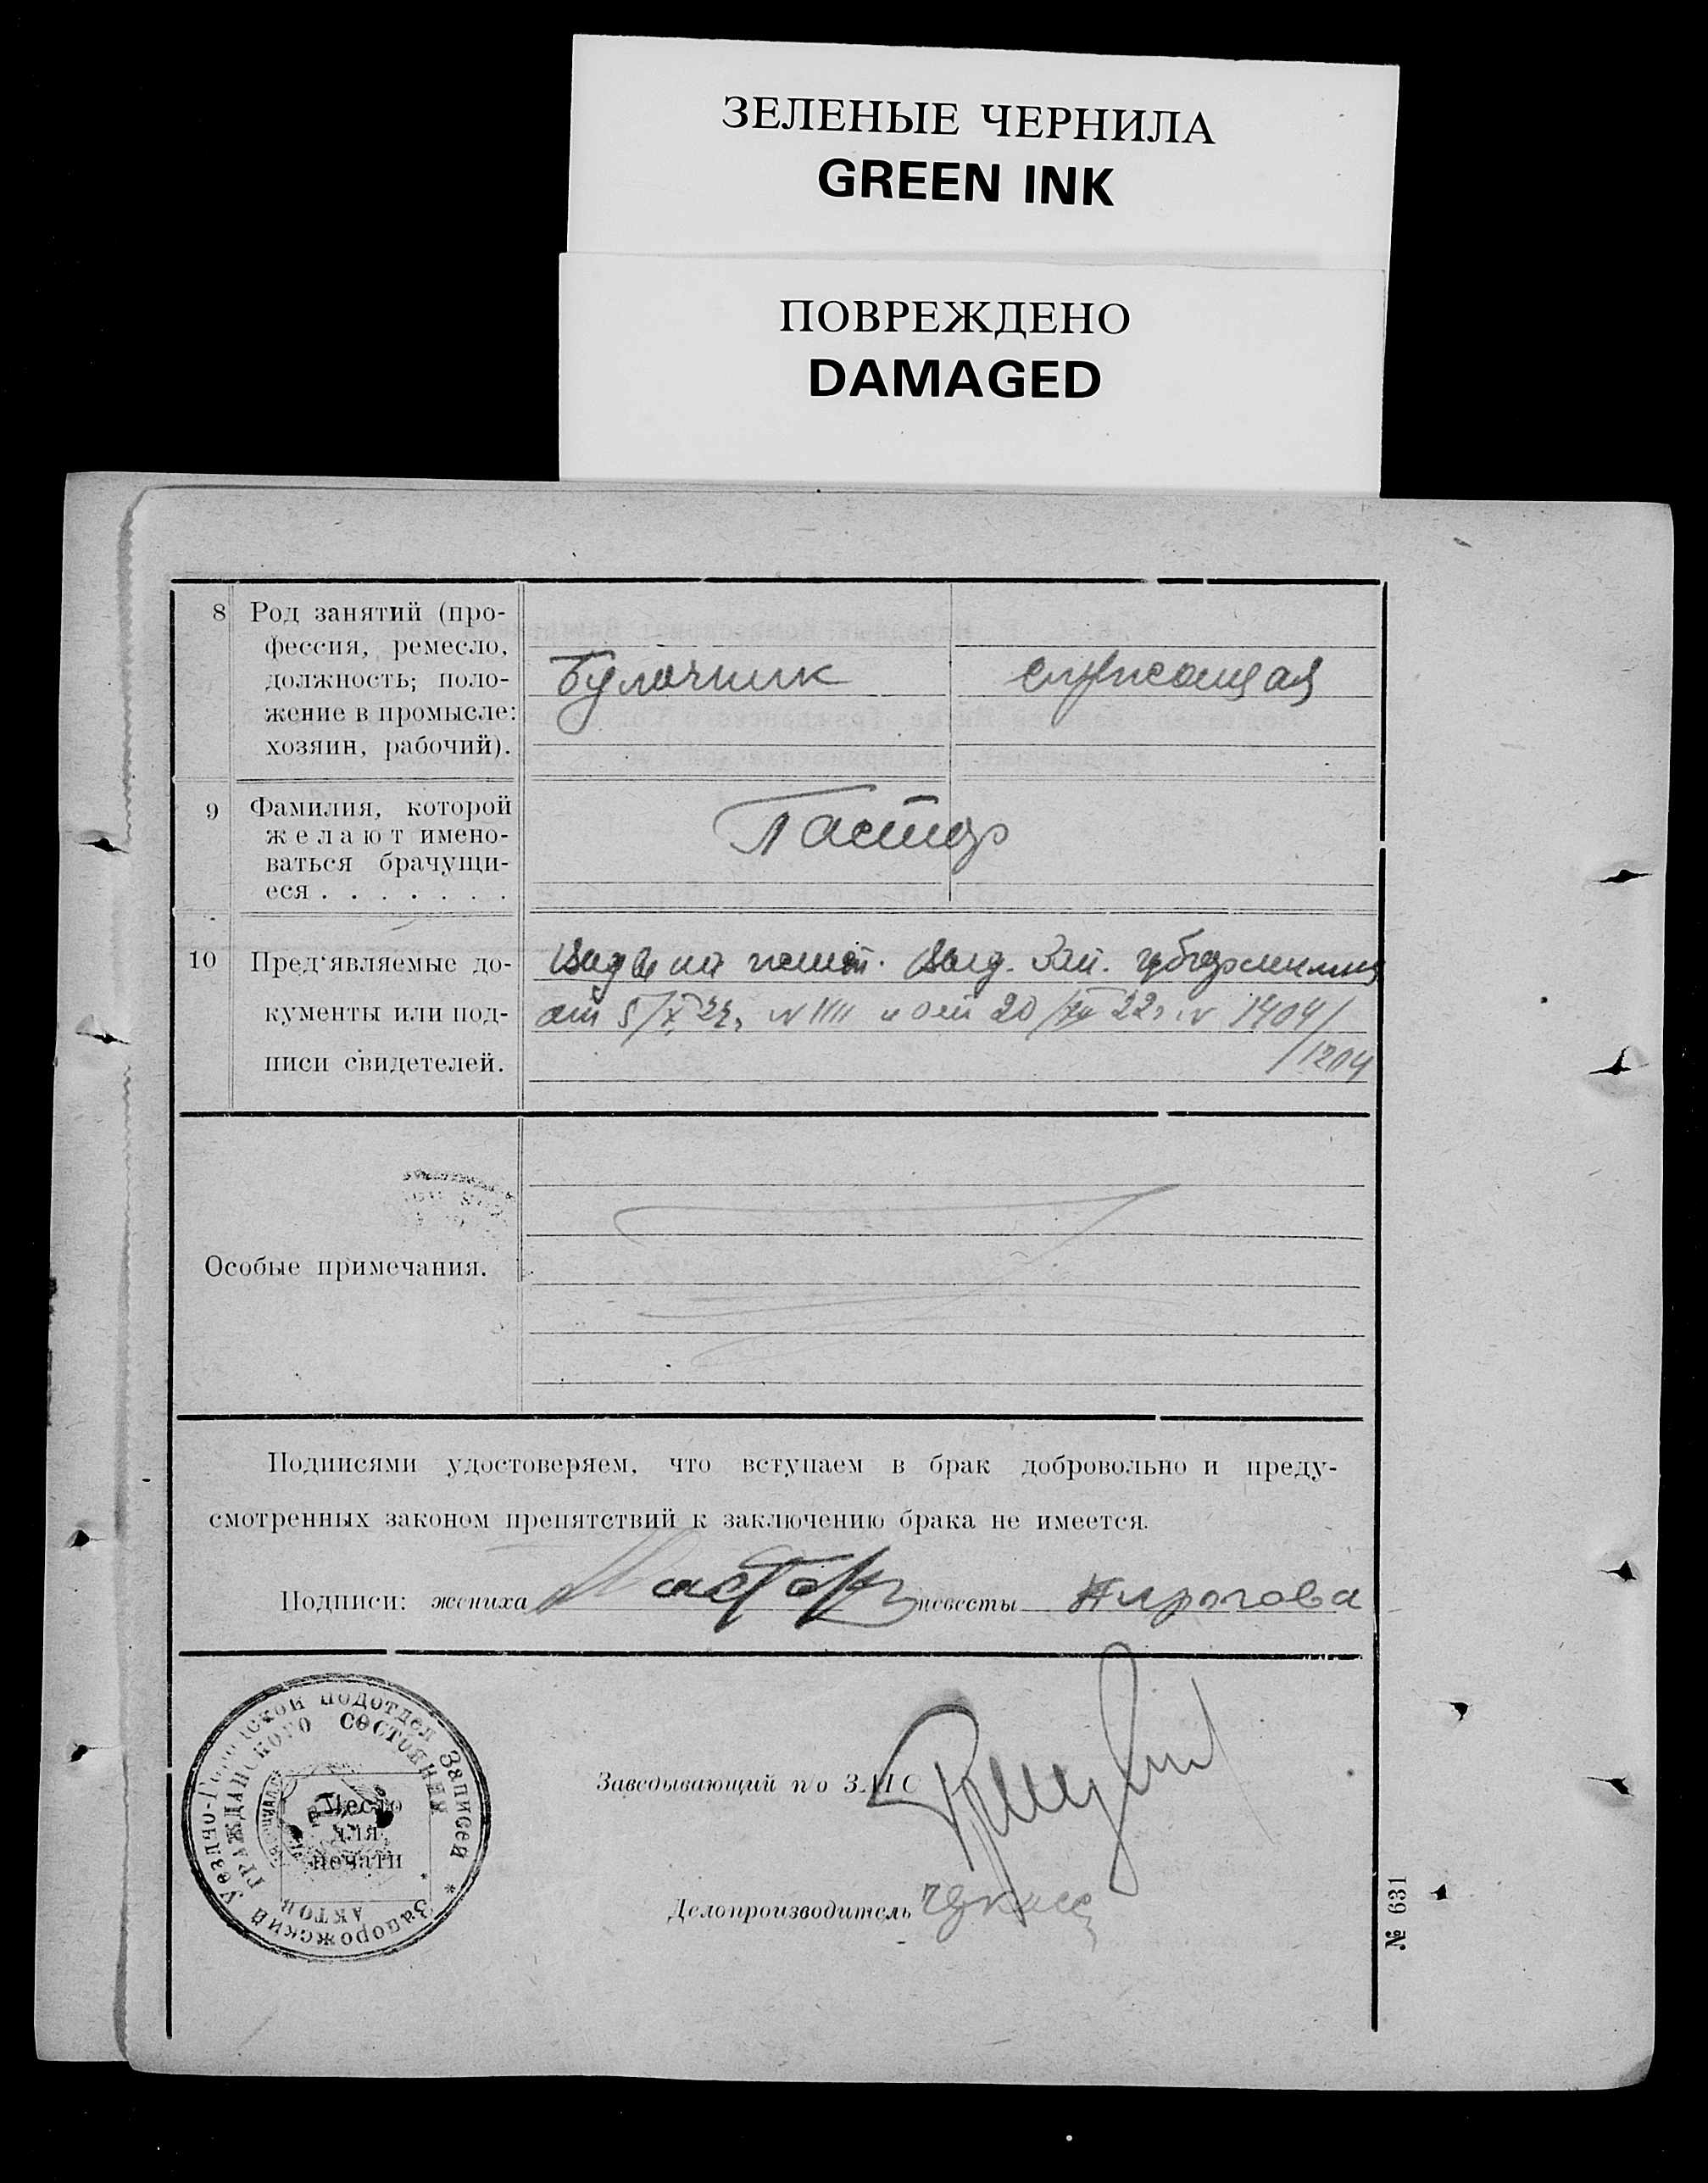 ЗЕЛЕНЫЕ ЧЕРНИЛА
GREEN INK
ПОВРЕЖДЕНО
DAMAGED
8 Род занятий (про-
фессия, ремесло,
должность; поло-
жение в промысле:
хозяин, рабочий).
Булочник служащая
9 Фамилия, которой
желают имено-
ваться брачущи-
еся . . . . . . .
Пастор
10 Пред'являемые до-
кументы или под-
писи свидетелей.
Виды на жит. Выд. Зап.
от 5/X 22г. № 1111 и от 20/XII 22г. № 1404/
/1204
Особые примечания.
Подписями удостоверяем, что вступаем в брак добровольно и преду-
смотренных законом препятствий к заключению брака не имеется.
Подписи: жениха Пастор невесты Пирогова
Заведывающий п/о ЗАГС
Делопроизводитель
Запорожский Уездно-Городской подотдел Записей *
АКТОВ ГРАЖДАНСКОГО СОСТОЯНИЯ
Место
для
печати
№ 631